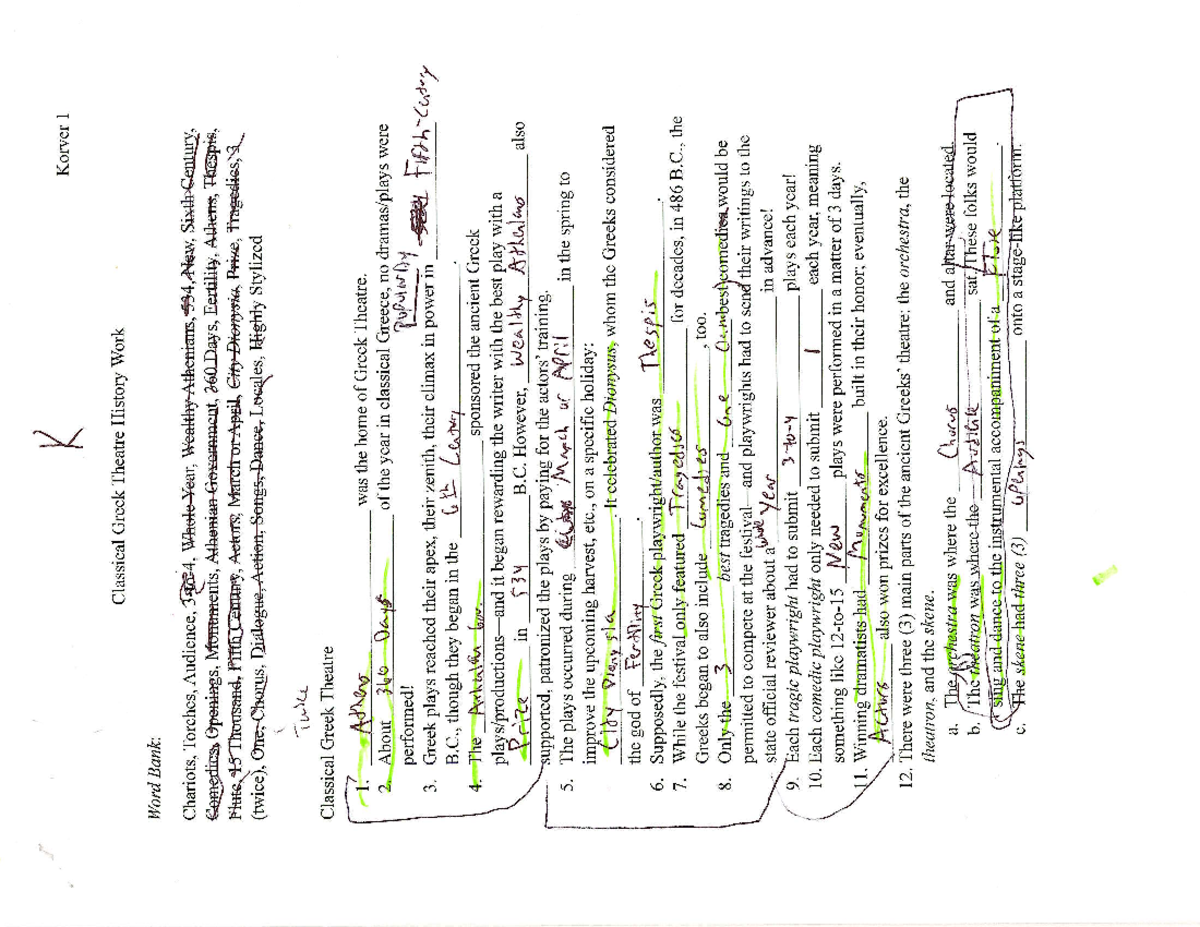 Korver 1
K
Classical Greek Theatre History Work
Word Bank:
Chariots, Torches, Audience, 3-to-4, Whole Year, Wealthy Athenians, 534, New, Sixth Century,
Comedies, Openings, Monuments, Athenian Government, 360 Days, Fertility, Athens, Thespis,
Flute, 15 Thousand, Fifth Century, Actors, March or April, City Dionysia, Prize, Tragedies, 3
(twice), One, Chorus, Dialogue, Action, Songs, Dance, Locales, Highly Stylized
Twice
Classical Greek Theatre
1. Athens was the home of Greek Theatre.
2. About 360 Days of the year in classical Greece, no dramas/plays were
performed!
popularly
3. Greek plays reached their apex, their zenith, their climax in power in Fifth-Century
B.C., though they began in the 6th Century.
4. The Athenian Gov. sponsored the ancient Greek
plays/productions—and it began rewarding the writer with the best play with a
Prize in 534 B.C. However, Wealthy Athenians also
supported, patronized the plays by paying for the actors' training.
5. The plays occurred during March or April in the spring to
improve the upcoming harvest, etc., on a specific holiday:
City Dionysia. It celebrated Dionysus, whom the Greeks considered
the god of Fertility.
6. Supposedly, the first Greek playwright/author was Thespis.
7. While the festival only featured Tragedies for decades, in 486 B.C., the
Greeks began to also include Comedies, too.
8. Only the 3 best tragedies and one best comedies would be
permitted to compete at the festival—and playwrights had to send their writings to the
state official reviewer about a Year in advance!
9. Each tragic playwright had to submit 3-to-4 plays each year!
10. Each comedic playwright only needed to submit 1 each year, meaning
something like 12-to-15 New plays were performed in a matter of 3 days.
11. Winning dramatists had Monuments built in their honor; eventually,
Actors also won prizes for excellence.
12. There were three (3) main parts of the ancient Greeks' theatre: the orchestra, the
theatron, and the skene.
a. The orchestra was where the Chorus and altar were located.
b. The theatron was where the Audience sat. These folks would
sing and dance to the instrumental accompaniment of a Flute.
c. The skene had three (3) openings onto a stage-like platform.